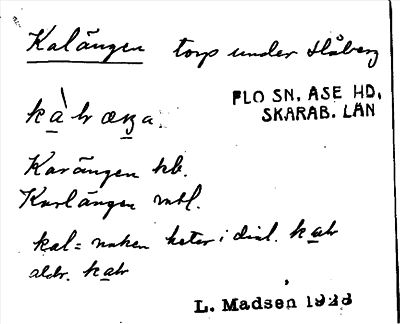 Kalängen torp under Slåberg
FLO SN, ÅSE HD,
SKARAB. LÄN
Karängen hb.
Karlängen mtl.
kal = naken heter i dial. kal
aldr. kal
L. Madsen 1928